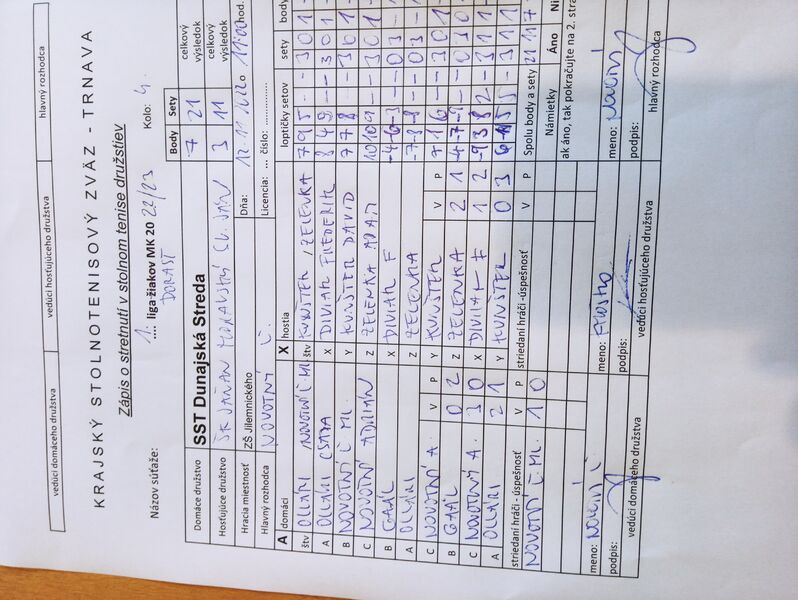 vedúci domáceho družstva vedúci hosťujúceho družstva hlavný rozhodca
KRAJSKÝ STOLNOTENISOVÝ ZVÄZ - TRNAVA
Zápis o stretnutí v stolnom tenise družstiev
Názov súťaže: 1. .... liga-žiakov MK 20 22/23 Kolo: 4.
DORAST
Body Sety celkový výsledok
Domáce družstvo SST Dunajská Streda 7 21
Hosťujúce družstvo 3 11 celkový výsledok
Hracia miestnosť ZŠ Jilemnického Dňa: o 11:00 hod.
Hlavný rozhodca NOVOTNÝ Č. Licencia: ... číslo: ..............
A domáci X hostia loptičky setov sety body
štv OLLÁRI NOVOTNÝ Č. ML. štv KUNŠTER / ZELENKA 7 9 5 - - 3 0 1 -
A OLLÁRI CSABA X DIVIAK FREDERIK 8 4 9 - - 3 0 1 -
B NOVOTNÝ Č ML. Y KUNŠTER DAVID 7 7 8 - - 3 0 1 -
C NOVOTNÝ ADRIÁN Z ZELENKA ADAM 10 10 9 - - 3 0 1 -
B GAÁL X DIVIAK F -4 -6 -3 - - 0 3 - 1
A OLLÁRI Z ZELENKA -7 -8 -8 - - 0 3 -
C NOVOTNÝ A. V P Y KUNŠTER V P 7 1 6 - - 3 0 1
B GAÁL 0 2 Z ZELENKA 2 1 - - 0 3 0
C NOVOTNÝ A. 3 0 X DIVIAK F 1 2 -9 3 8 2 - 3 1 1
A OLLÁRI 2 1 Y KUNŠTER 0 3 - 3 1 1
striedaní hráči - úspešnosť V P striedaní hráči -úspešnosť V P Spolu body a sety 21 11 7
NOVOTNÝ Č ML. 1 0 Námietky Áno
ak áno, tak pokračujte na 2. stra
meno: NOVOTNÝ Č meno: meno: NOVOTNÝ
podpis: podpis: podpis:
vedúci domáceho družstva vedúci hosťujúceho družstva hlavný rozhodca